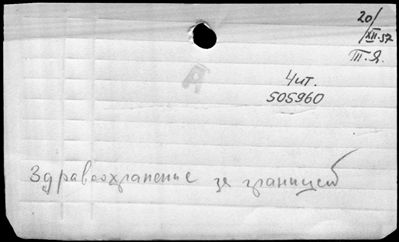 20/
XII.57
Т.Я.
Чит.
505960
Здравоохранение за границей